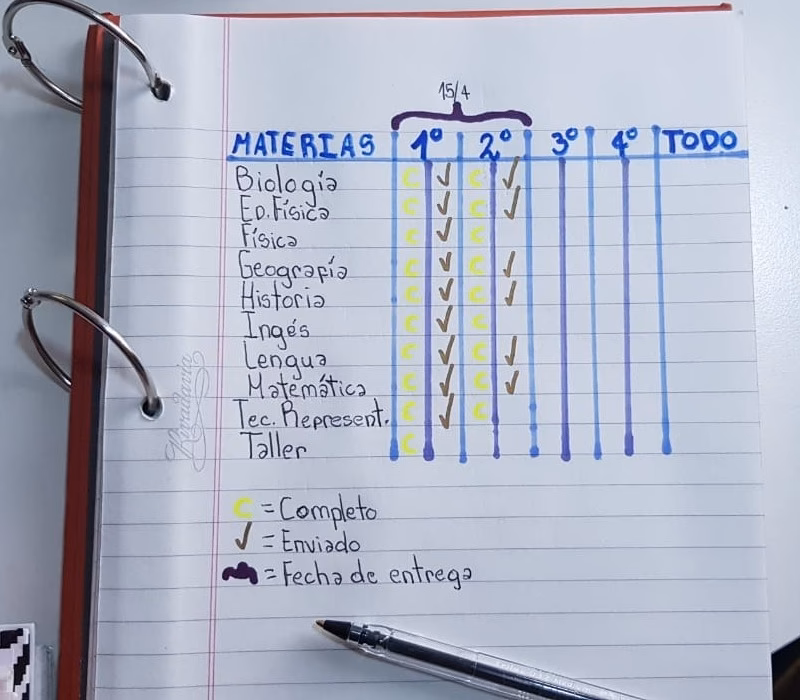 15/4
MATERIAS 1º 2º 3º 4º TODO
Biología C ✓ C ✓
Ed.Física C ✓ C ✓
Física C ✓ C
Geografía C ✓ C ✓
Historia C ✓ C ✓
Ingés C ✓ C
Lengua C ✓ C ✓
Matemática C ✓ C ✓
Tec. Represent. C ✓ C
Taller C
C = Completo
✓ = Enviado
= Fecha de entrega
Rivadavia